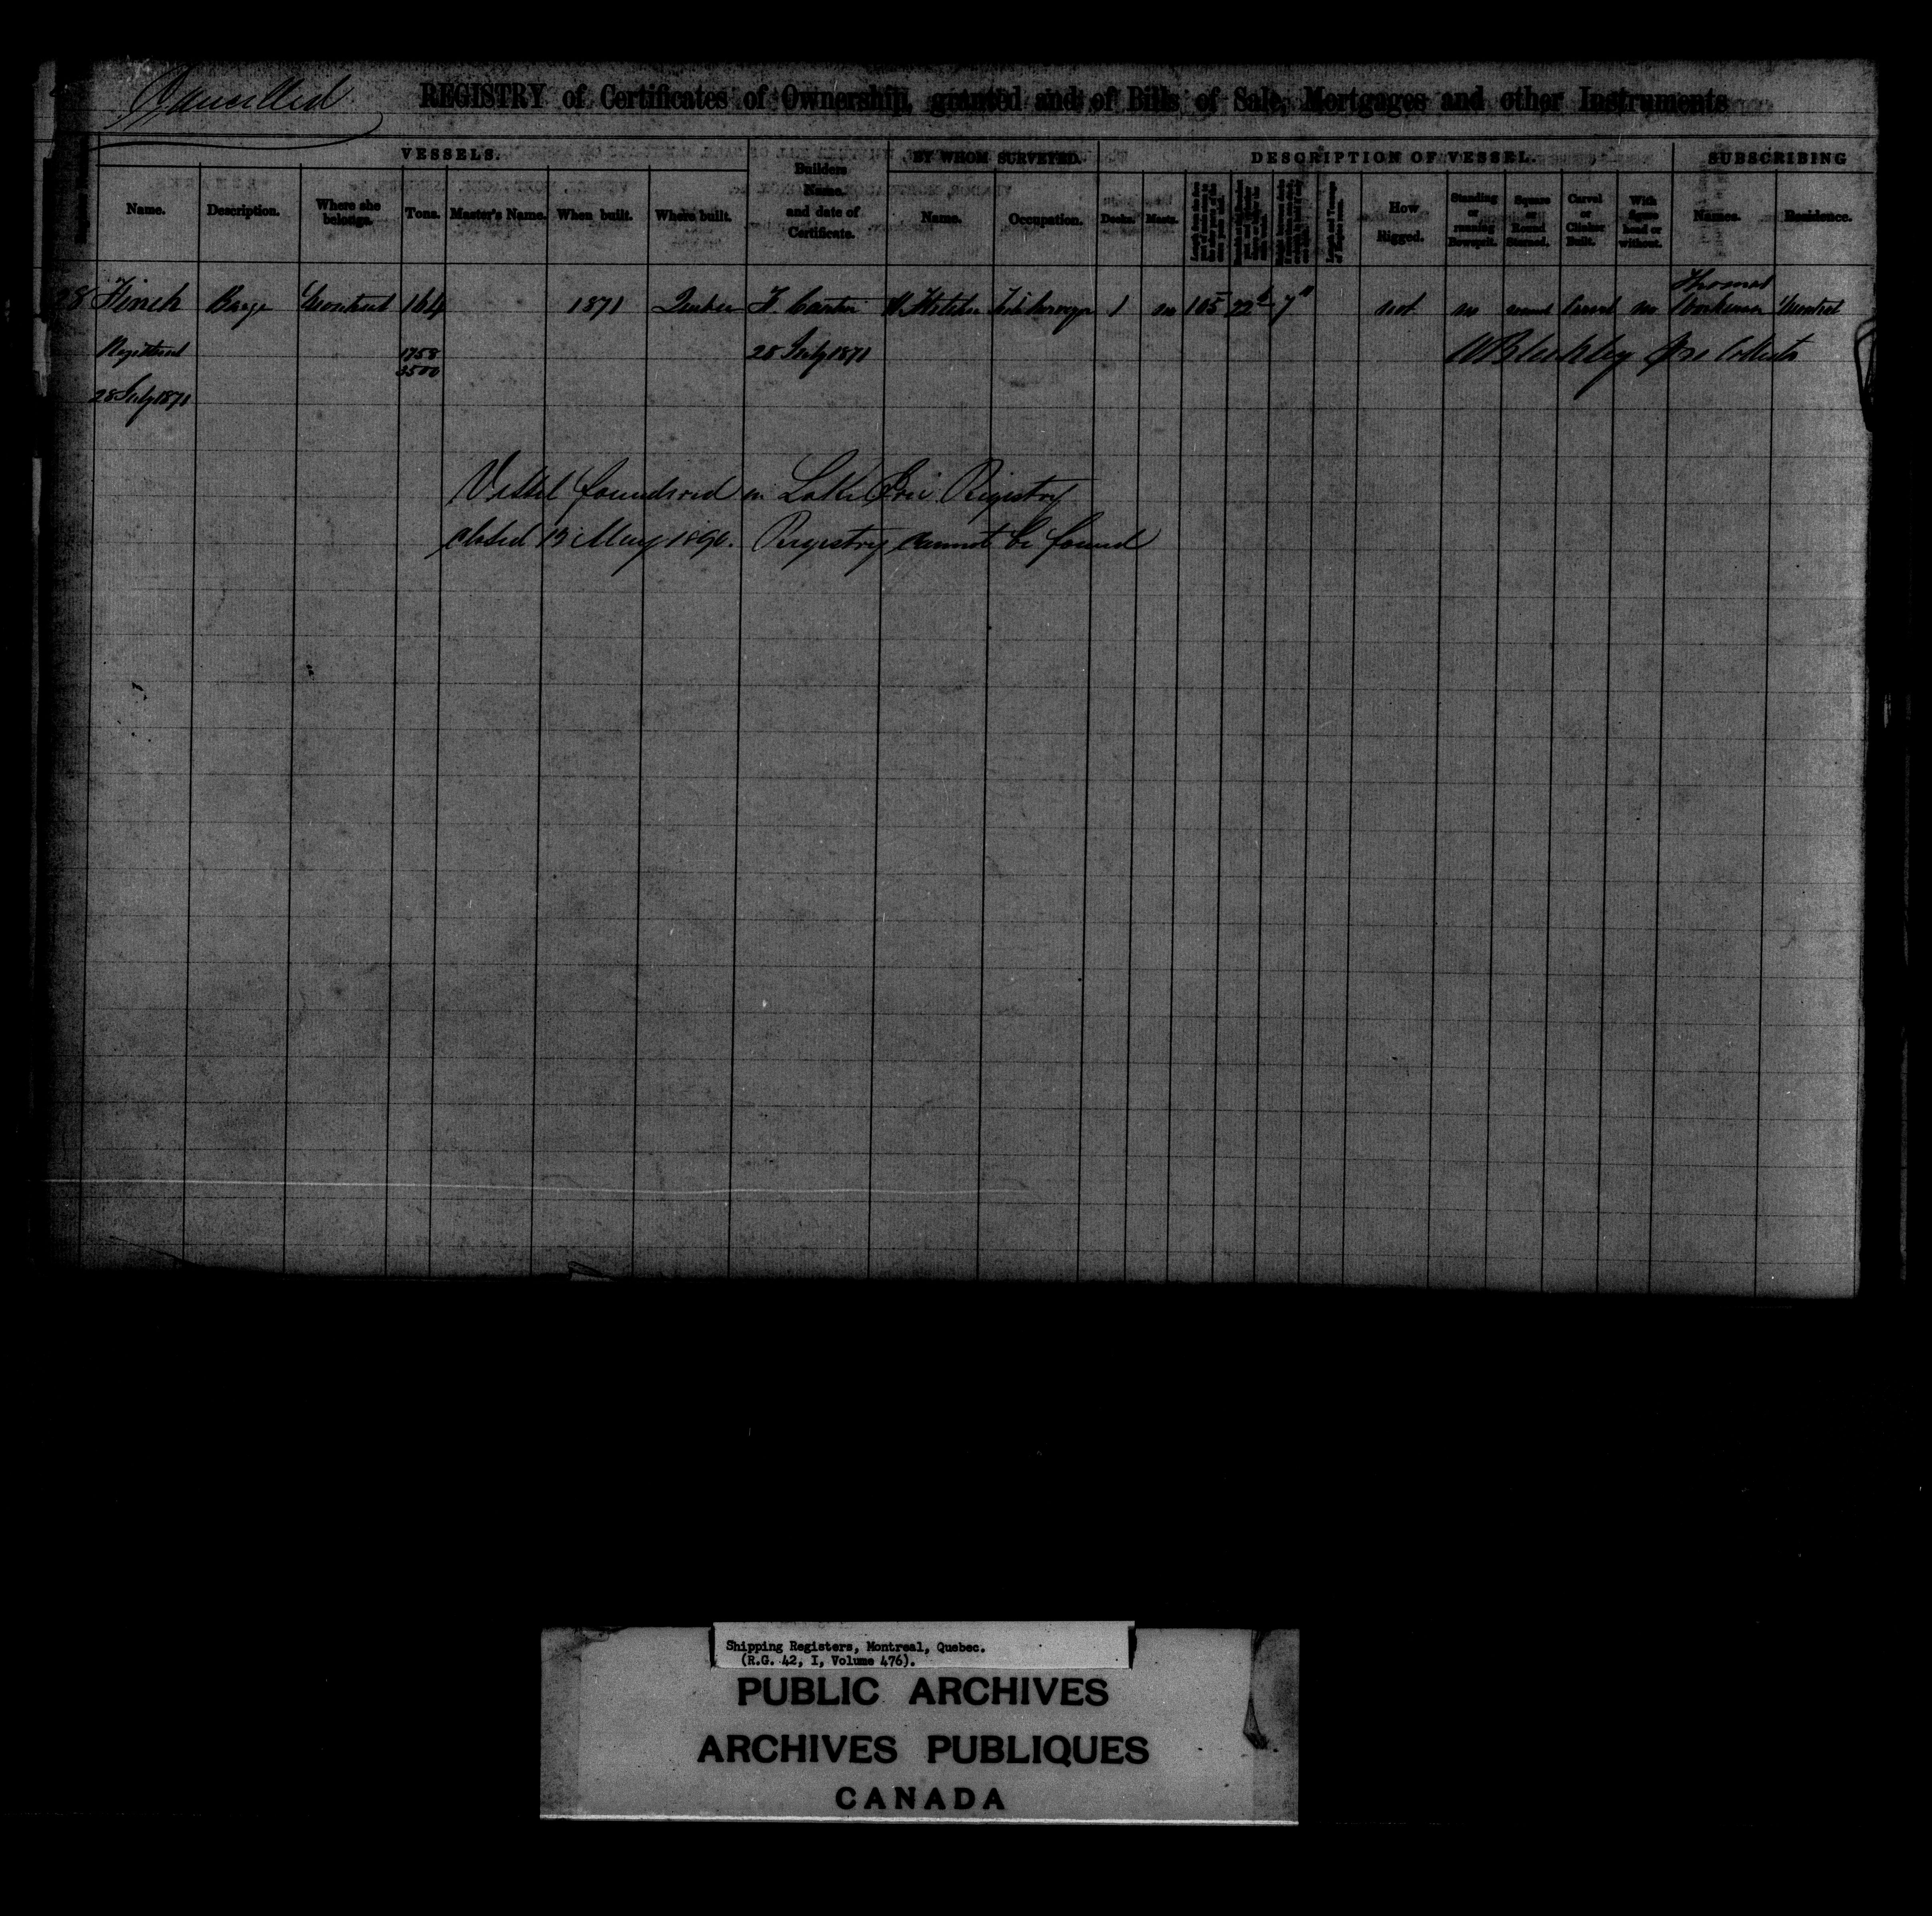 Cancelled
REGISTRY of Certificates of Ownership, granted and of Bills of Sale, Mortgages and other Instruments
VESSELS. BY WHOM SURVEYED. DESCRIPTION OF VESSEL. SUBSCRIBING
Name. Description. Where she belongs. Tons. Master's Name. When built. Where built. Builders Name. and date of Certificate. Name. Occupation. Decks. Masts. How Rigged. Standing or running Bowsprit. Square or Round Sterned. Carvel or Clinker Built. With figure head or without. Names. Residence.
28 Finch Barge Montreal 164 1871 Quebec F. Cantin 1 no 105 22 7 not no round Carvel no Thomas Workman Montreal
Registered 1758 28 July 1871 Collector
3500
28 July 1871
Vessel foundered in Lake Erie Registry
closed 12 May 1890. Registry cannot be found
Shipping Registers, Montreal, Quebec.
(R.G. 42, I, Volume 476).
PUBLIC ARCHIVES
ARCHIVES PUBLIQUES
CANADA